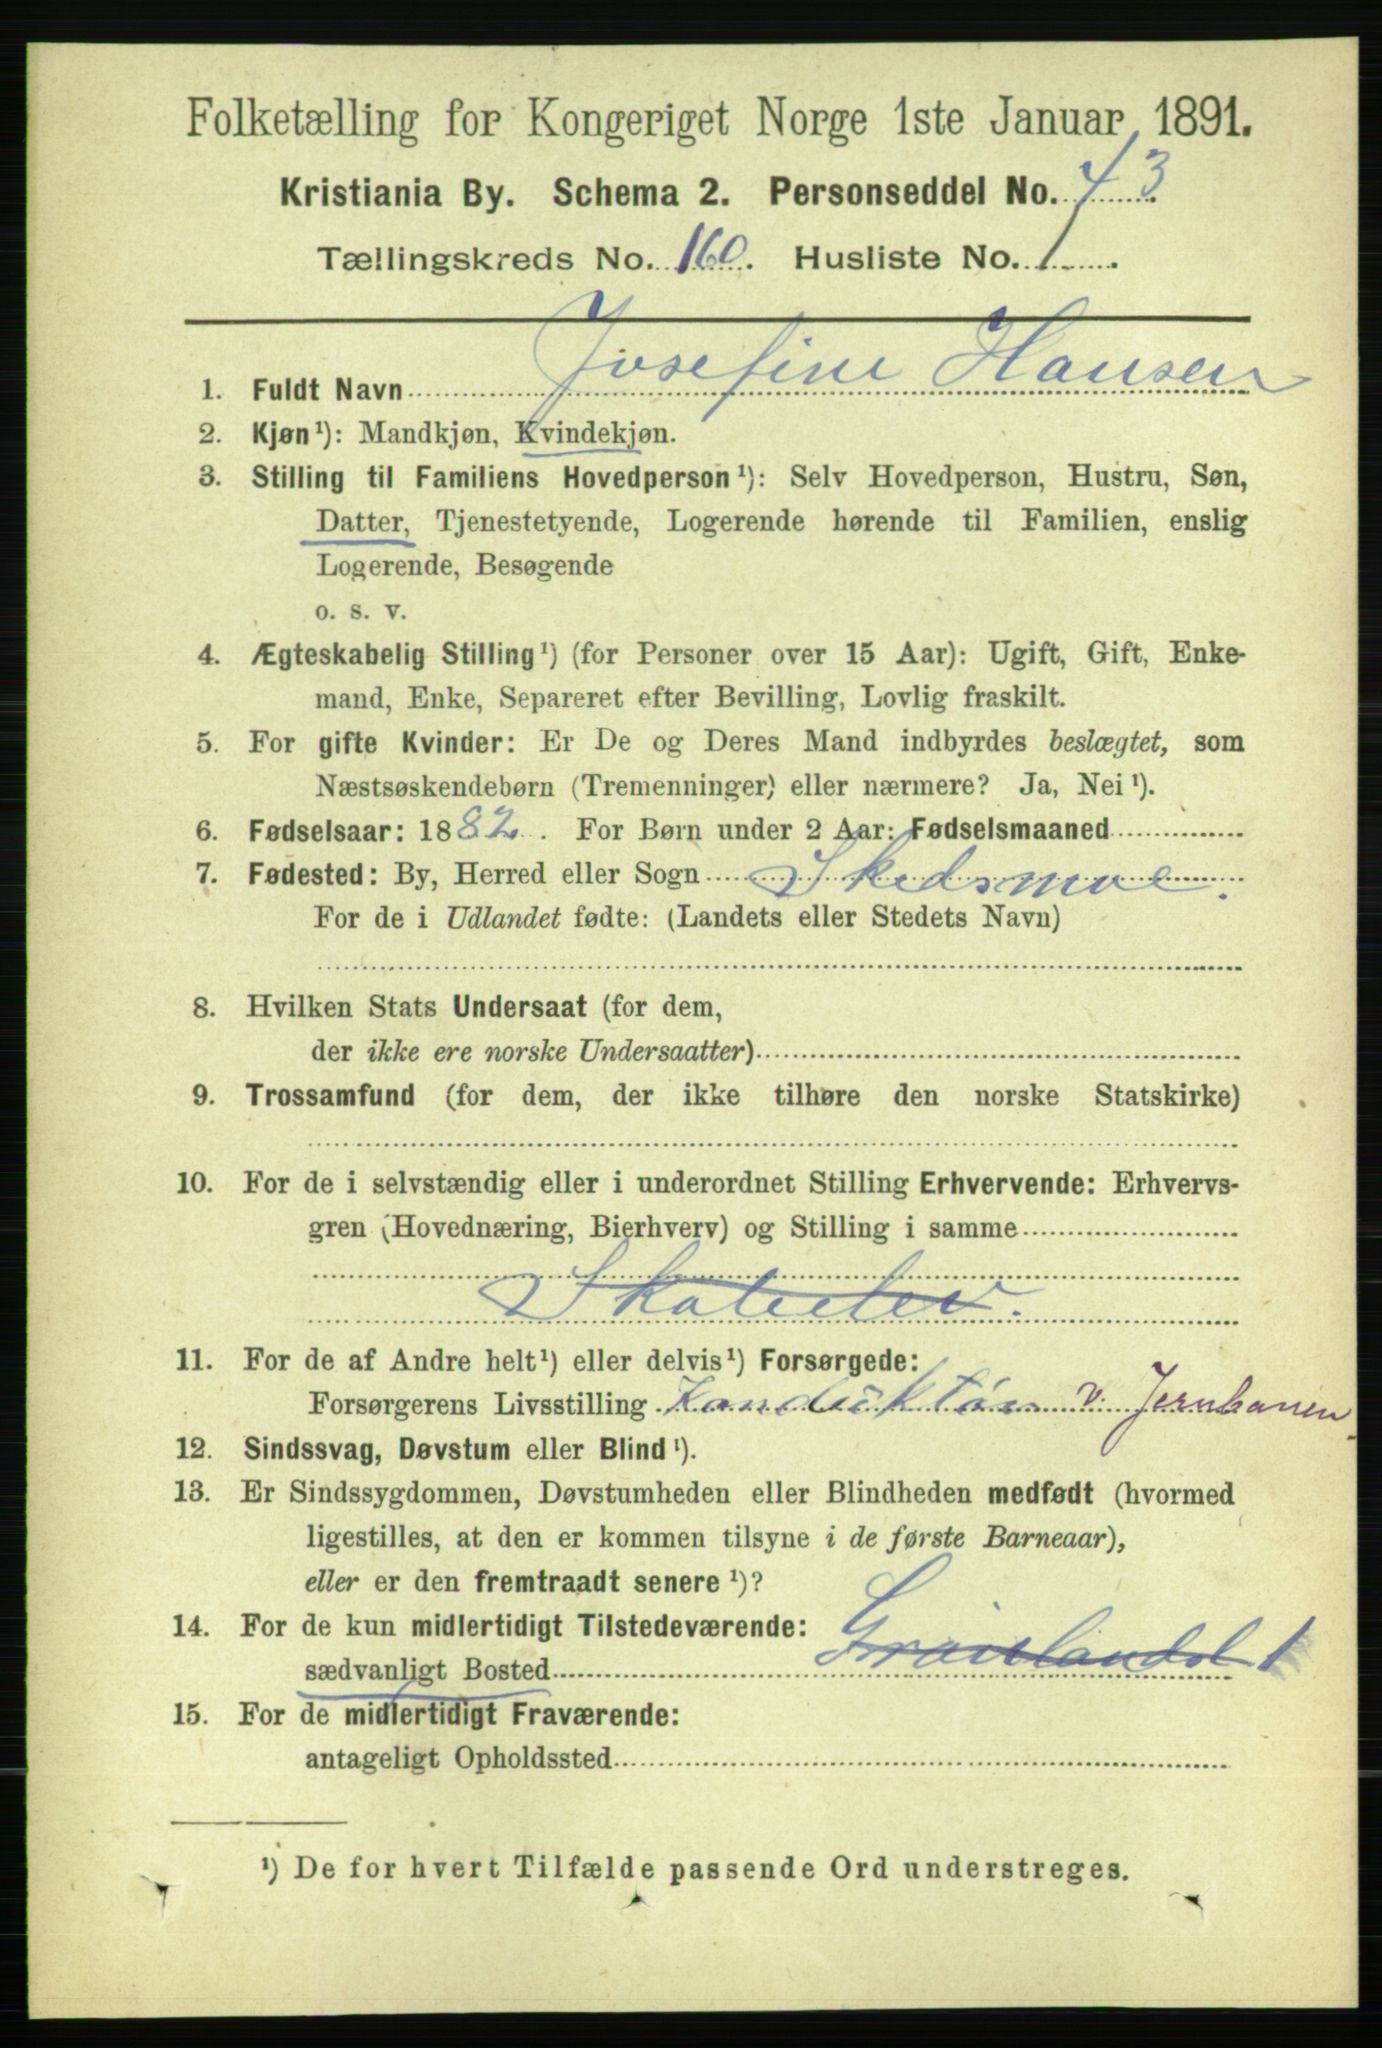 Folketælling for Kongeriget Norge 1ste Januar 1891.
Kristiania By. Schema 2. Personseddel No. 43
Tællingskreds No. 160. Husliste No. 1.
1. Fuldt Navn Josefine Hansen
2. Kjøn¹): Mandkjøn, Kvindekjøn.
3. Stilling til Familiens Hovedperson¹): Selv Hovedperson, Hustru, Søn,
Datter, Tjenestetyende, Logerende hørende til Familien, enslig
Logerende, Besøgende
o. s. v.
4. Ægteskabelig Stilling¹) (for Personer over 15 Aar): Ugift, Gift, Enke-
mand, Enke, Separeret efter Bevilling, Lovlig fraskilt.
5. For gifte Kvinder: Er De og Deres Mand indbyrdes beslægtet, som
Næstsøskendebørn (Tremenninger) eller nærmere? Ja, Nei¹).
6. Fødselsaar: 1882. For Børn under 2 Aar: Fødselsmaaned
7. Fødested: By, Herred eller Sogn Skedsmoe.
For de i Udlandet fødte: (Landets eller Stedets Navn)
8. Hvilken Stats Undersaat (for dem,
der ikke ere norske Undersaatter)
9. Trossamfund (for dem, der ikke tilhøre den norske Statskirke)
10. For de i selvstændig eller i underordnet Stilling Erhvervende: Erhvervs-
gren (Hovednæring, Bierhverv) og Stilling i samme
11. For de af Andre helt¹) eller delvis¹) Forsørgede:
Forsørgerens Livsstilling Konduktør v. Jernbanen
12. Sindssvag, Døvstum eller Blind¹).
13. Er Sindssygdommen, Døvstumheden eller Blindheden medfødt (hvormed
ligestilles, at den er kommen tilsyne i de første Barneaar),
eller er den fremtraadt senere¹)?
14. For de kun midlertidigt Tilstedeværende:
sædvanligt Bosted
15. For de midlertidigt Fraværende:
antageligt Opholdssted
¹) De for hvert Tilfælde passende Ord understreges.